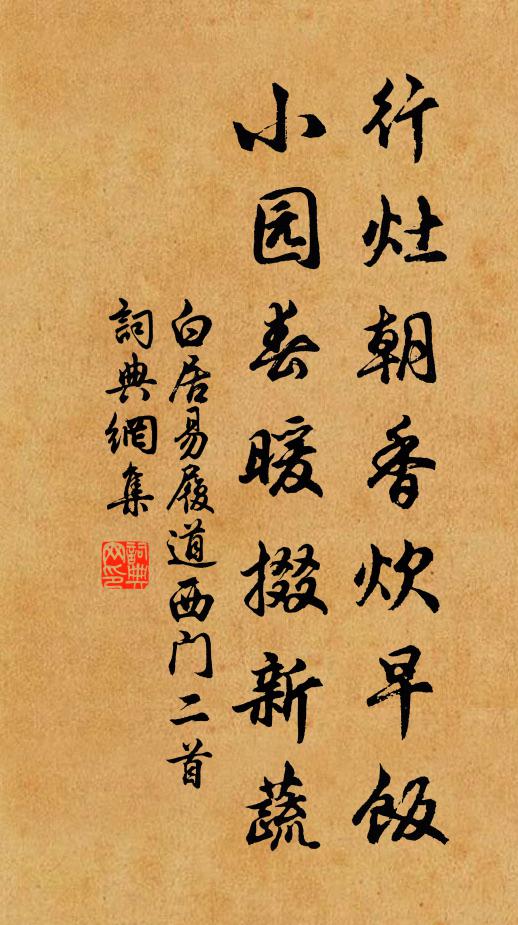 行灶朝香炊早饭
小园春暖掇新蔬
白居易履道西门二首
詞典網集
詞典
网印